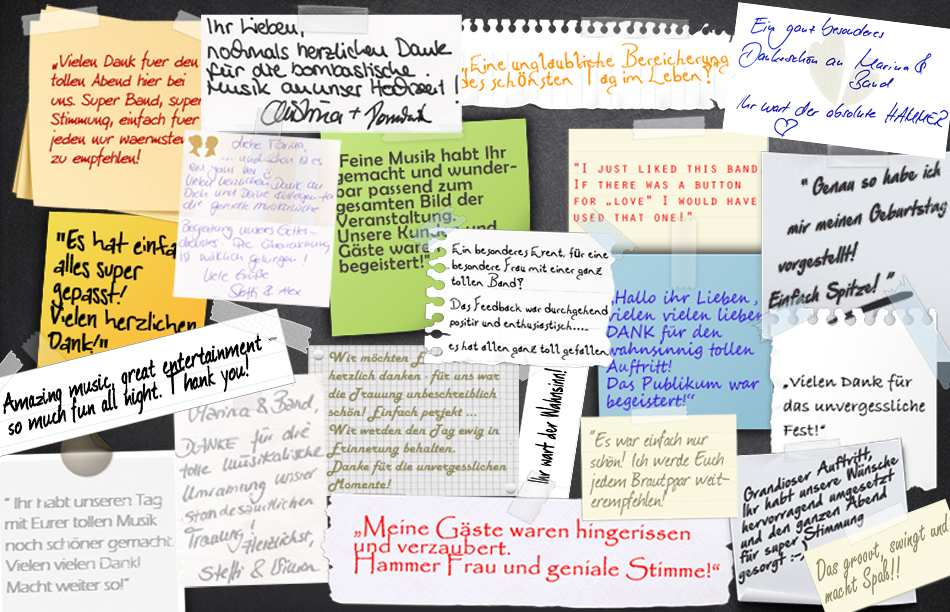 „Vielen Dank fuer den
tollen Abend hier bei
uns. Super Band, super
Stimmung, einfach fuer
jeden nur waermsten
zu empfehlen!
Ihr Lieben,
nochmals herzlichen Dank
für die bombastische
Musik an unser Hochzeit!
„Eine unglaubliche Bereicherung
des schönsten Tag im Leben!"
Ein ganz besonderes
Dankeschön an Marina &
Band
Ihr wart der absolute HAMMER
Liebe
ein ganz
vielen herzlichen Dank an
Dich und Deine Kollegen für
die geniale musikalische
Begleitung unseres Gottes-
dienstes. Die Überraschung
ist wirklich gelungen!
Liebe Grüße
Steffi & Alex
"Feine Musik habt Ihr
gemacht und wunder-
bar passend zum
gesamten Bild der
Veranstaltung.
Unsere Kunden und
Gäste waren
begeistert!"
"I JUST LIKED THIS BAND.
IF THERE WAS A BUTTON
FOR „LOVE" I WOULD HAVE
USED THAT ONE!"
" Genau so habe ich
mir meinen Geburtstag
vorgestellt!
Einfach Spitze! "
"Es hat einfa
alles super
gepasst!
Vielen herzlichen
Dank!"
Ein besonderes Event, für eine
besondere Frau mit einer ganz
tollen Band!
Das Feedback war durchgehend
positiv und enthusiastisch....
es hat allen ganz toll gefallen.
„Hallo ihr Lieben,
vielen vielen lieben
DANK für den
wahnsinnig tollen
Auftritt!
Das Publikum war
begeistert!"
„Vielen Dank für
das unvergessliche
Fest!"
Amazing music, great entertainment -
so much fun all night. Thank you!
Wir möchten
herzlich danken - für uns war
die Trauung unbeschreiblich
schön! Einfach perfekt ...
Wir werden den Tag ewig in
Erinnerung behalten.
Danke für die unvergesslichen
Momente!
Ihr wart der Wahnsinn!
Marina & Band,
DANKE für die
tolle musikalische
Umrahmung unser
standesamtlichen
Trauung!
Herzlichst,
Steffi &
"Es war einfach nur
schön! Ich werde Euch
jedem Brautpaar weit-
erempfehlen!
" Ihr habt unseren Tag
mit Eurer tollen Musik
noch schöner gemacht.
Vielen vielen Dank!
Macht weiter so!"
„Meine Gäste waren hingerissen
und verzaubert.
Hammer Frau und geniale Stimme!"
Grandioser Auftritt,
Ihr habt unsere Wünsche
hervorragend umgesetzt
und den ganzen Abend
für super Stimmung
gesorgt :-)
Das groovt, swingt und
macht Spaß!!